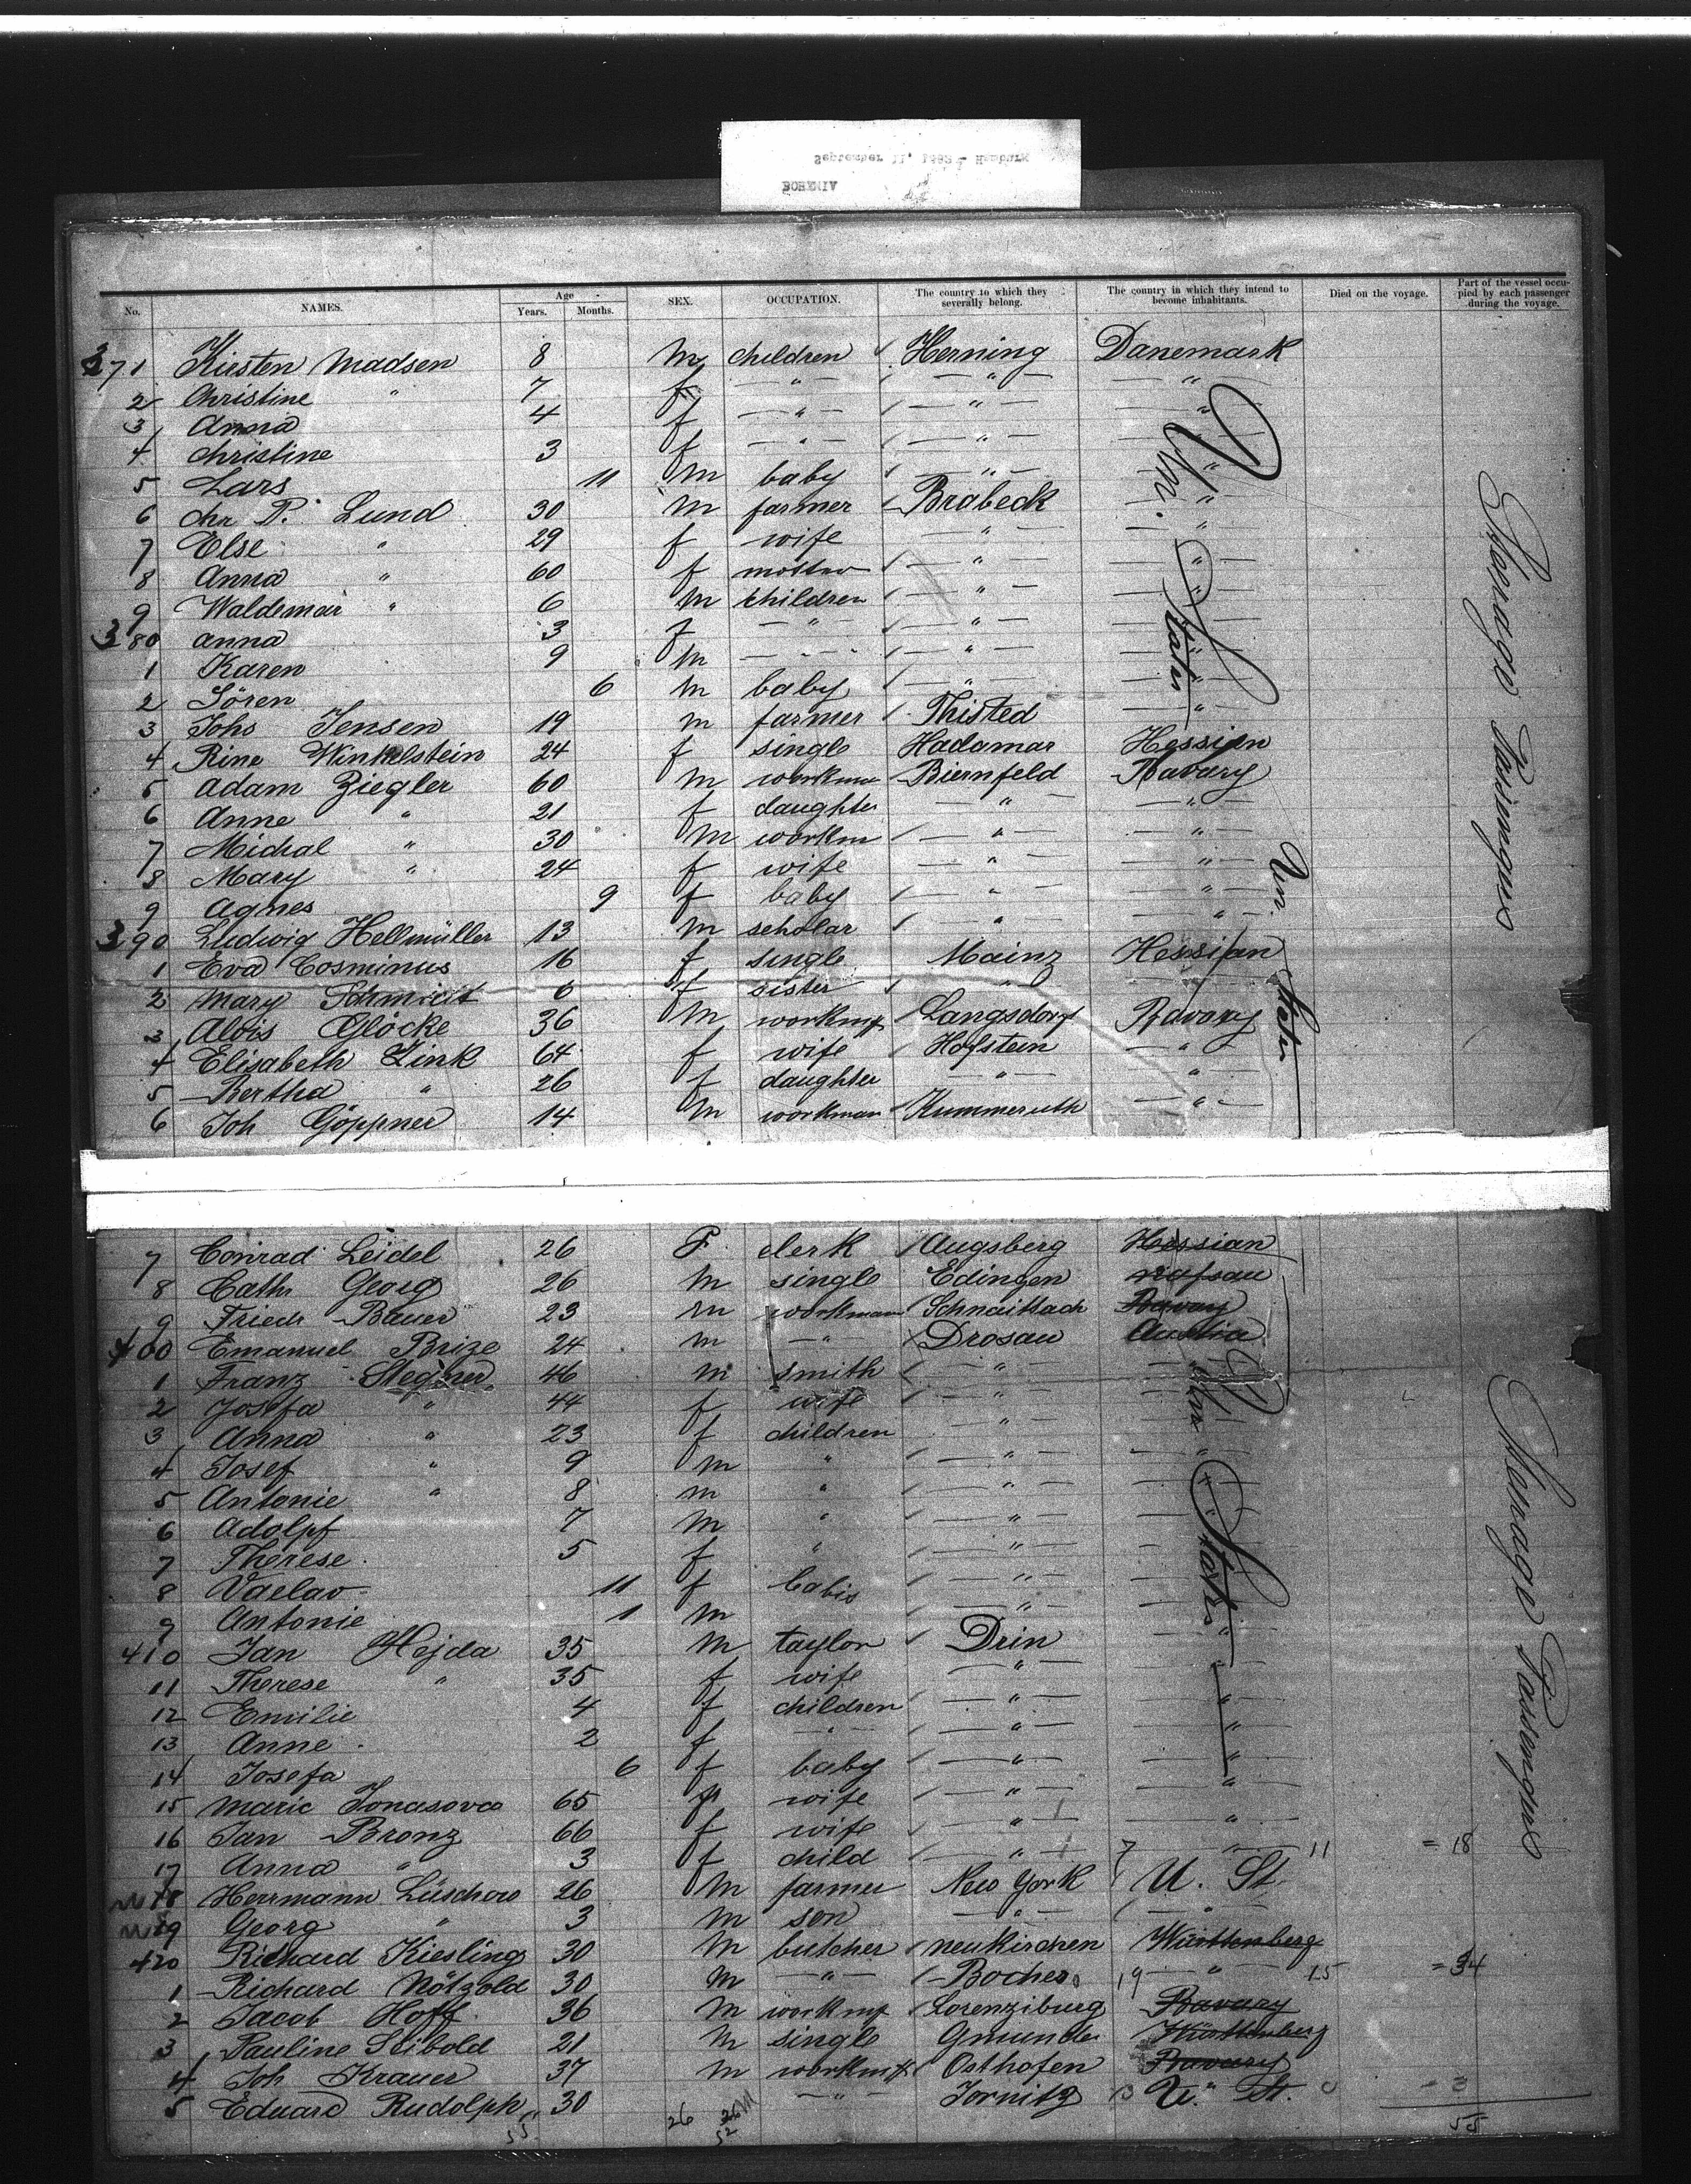 September 11, 1882 - Hamburg
BOHEMIA
No. NAMES. Age Years. Months. SEX. OCCUPATION. The country to which they severally belong. The country in which they intend to become inhabitants. Died on the voyage. Part of the vessel occupied by each passenger during the voyage.
371 Kirsten Madsen 8 m children Herning Danemark
2 Christine " 7 f — " — — " — — " —
3 Anna 4 f — " — — " — "
4 Christine 3 f — " — — " —
5 Lars 11 m baby — " — "
6 Chr P. Lund 30 m farmer Brabeck "
7 Else " 29 f wife — " — "
8 Anna " 60 f — " — "
9 Waldemar " 6 m children — " —
380 Anna 3 f — " — — " —
1 Karen 9 m — " — — " — "
2 Sören 6 m baby — " —
3 Johs Jensen 19 m farmer Thisted — " —
4 Rine Winkelstein 24 f single Hadamar Hessian
5 Adam Ziegler 60 m workm Biernfeld Bavary
6 Anne " 21 f daughter — " — — " —
7 Michal " 30 m workm — " — — " —
8 Mary " 24 f wife — " — — " —
9 Agnes 9 f baby — " — — " —
390 Ludwig Hellmüller 13 m scholar — " — — " —
1 Eva Cosminus 16 f single Mainz Hessian
2 Mary Schmidt 6 f sister "
3 Alois Glöcke 36 m workm Langsdorf Bavary
4 Elisabeth Zink 64 f wife Hofstein — " —
5 Bertha " 26 f daughter — " — "
6 Joh Göppner 14 m workman Kummeruth — " —
Uni. States
Un. States
Steerage Passengers
7 Conrad Leidel 26 F clerk Augsberg Hessian
8 Cath Georg 26 m single Edingen
9 Friedr Bauer 23 m workman Schnaittach Bavary
400 Emanuel Brize 24 m — " Drosau Austria
1 Franz Stegner 46 m smith — " — "
2 Josefa " 44 f wife — " —
3 Anna " 23 f children — " —
4 Josef " 9 m " — " — — " —
5 Antonie " 8 m " — " —
6 Adolpf 7 m " — " —
7 Therese 5 f " — " —
8 Vaclav 11 f babis — " —
9 Antonie 1 m — " —
410 Jan Hejda 35 m taylor Drin "
11 Therese " 35 f wife — " — "
12 Emilie 4 f children — " — "
13 Anne 2 f — " — — " — "
14 Josefa 6 f baby — " — — " —
15 Marie Jonasova 65 f wife — " — "
16 Jan Bronz 66 f wife — " — "
17 Anna " 3 f child — " — 7 — " — 11 = 18
18 Herrmann Lüschow 26 m farmer New York U. St.
19 Georg " 3 m son — " — — " —
420 Richard Kiesling 30 m butcher Neukirchen Württenberg
1 Richard Nötzold 30 m — " — Bocher 19 — " — 15 = 34
2 Jacob Hoff 36 m workm Lorenziburg Bavary
3 Pauline Seibold 21 m single Gmunder Württenberg
4 Joh Krauer 37 m workm Osthofen Bavary
5 Eduard Rudolph 30 — " — Jornitz 3 U. St. 0 = 3
55 26 26 52 55
Uni States
Steerage Passengers